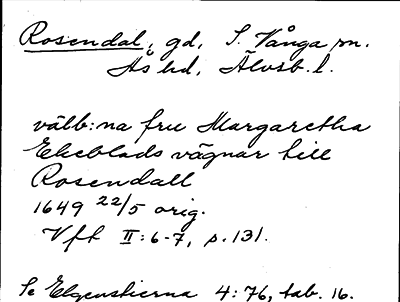 Rosendal, gd, S. Vånga sn.
Ås hd, Älvsb. l.
välb:na fru Margaretha
Ekeblads vägnar till
Rosendall
1649 22/5 orig.
Vft II:6-7, s. 131.
Se Elgenstierna 4:76, tab. 16.